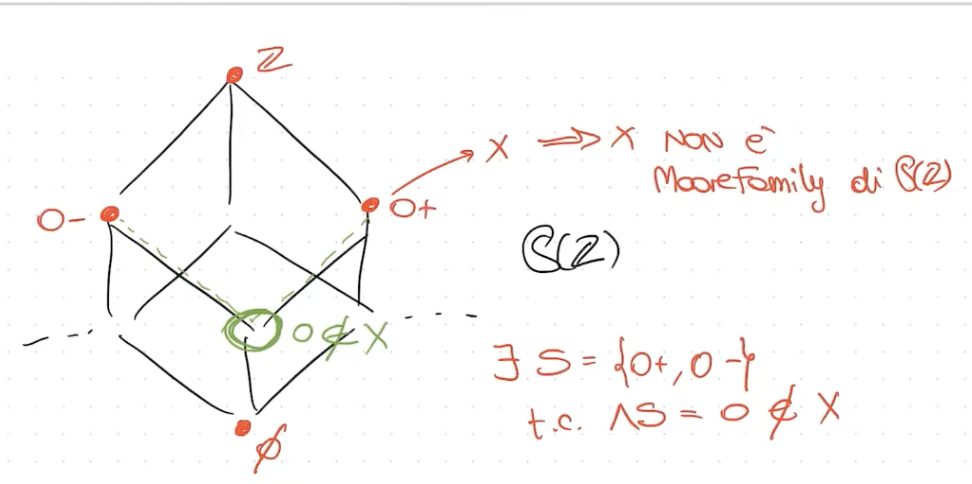 ℤ
X ⟹ X NON è
Moore Family di ℘(ℤ)
0-
0+
℘(ℤ)
0 ∉ X
∃ S = {0+, 0-}
t.c. ∧S = 0 ∉ X
∅